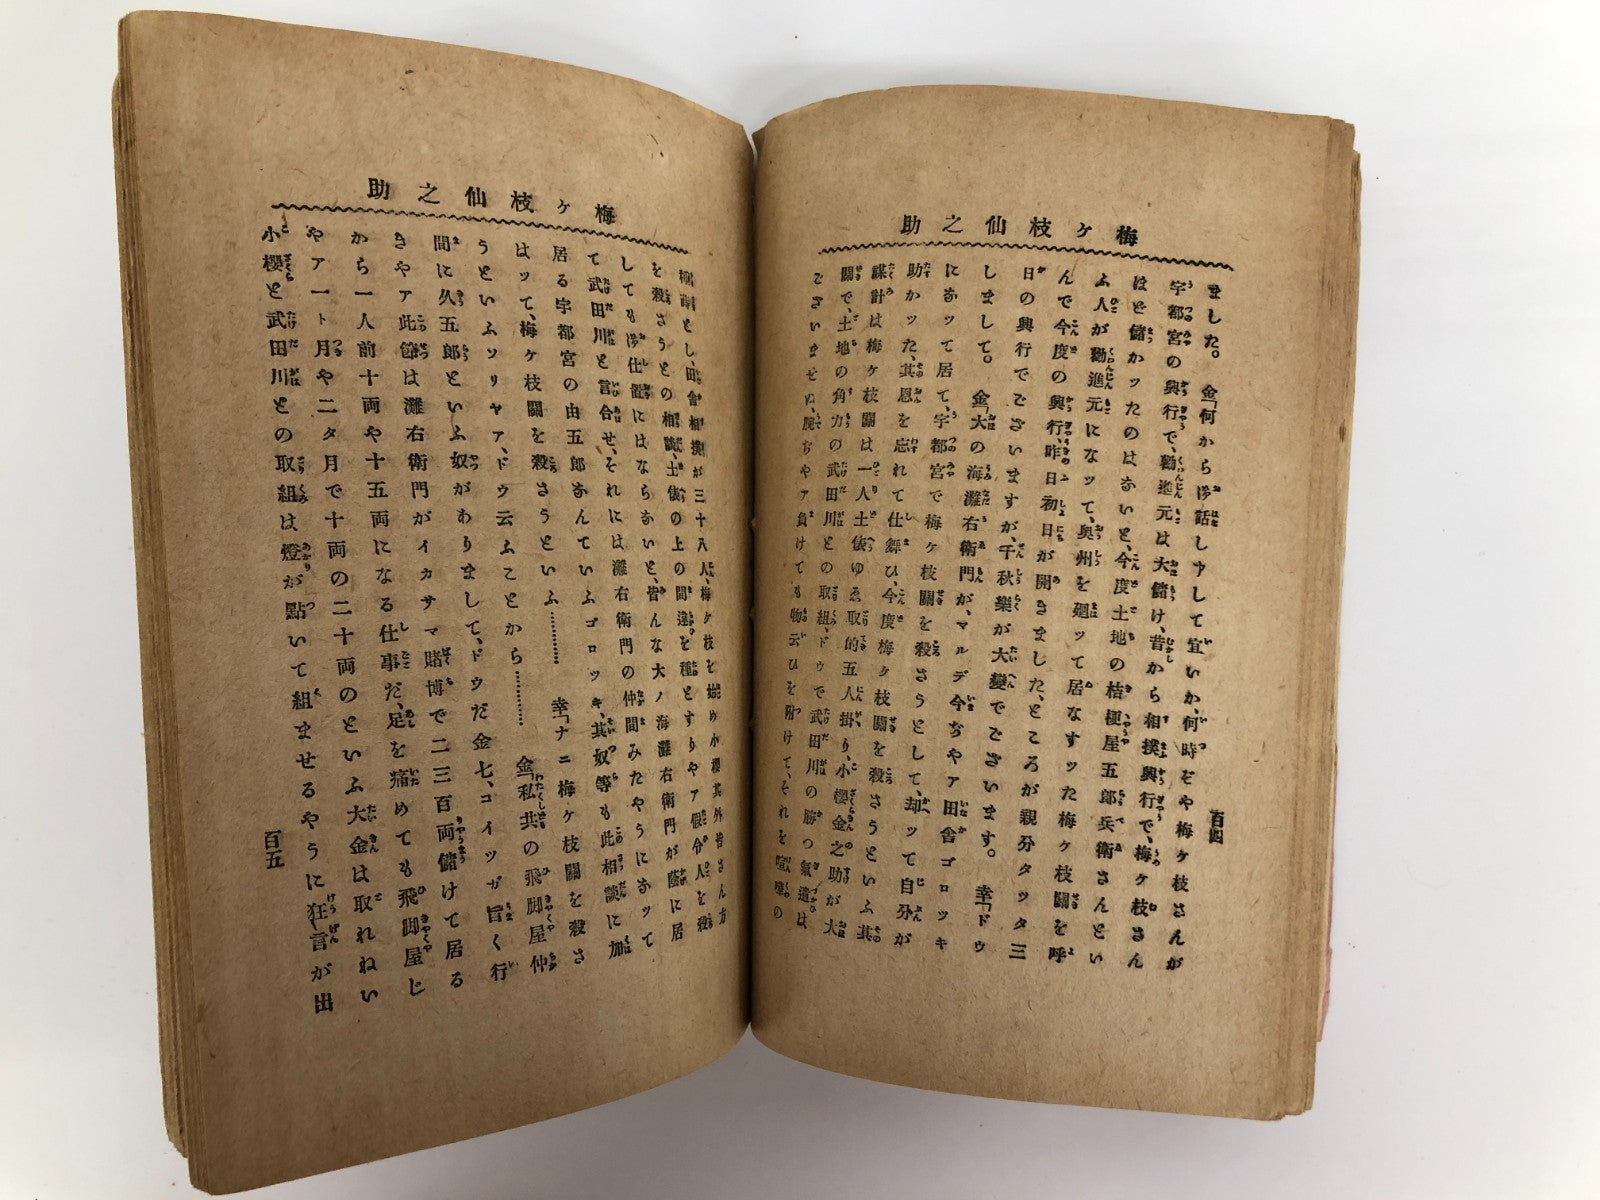 梅ヶ枝仙之助
ました。　金「何から御話し申して宜いか、何時ぞや梅ヶ枝さんが
宇都宮の興行で、勸進元は大儲け、昔から相撲興行で、梅ヶ枝さん
ほど儲かッたのはないと、今度土地の桔梗屋五郎兵衛さんとい
ふ人が勸進元になッて、奥州を廻ッて居なすッた梅ヶ枝關を呼
んで今度の興行、昨日初日が開きました、ところが親分タッタ三
日の興行でございますが、千秋樂が大變でございます。　幸「ドウ
しまして。　金「大の海灘右衛門が、マルデ今ぢやア田舎ゴロツキ
になッて居て、宇都宮で梅ヶ枝關を殺さうとして、却ッて自分が
助かッた、其恩を忘れて仕舞ひ、今度梅ヶ枝關を殺さうといふ其
謀計は梅ヶ枝關は一人土俵ゆゑ取的五人掛り、小櫻金之助が大
關で、土地の角力の武田川との取組、ドウで武田川の勝つ氣遣は
ございませぬ、腕ぢやア負けても物云ひを附けて、それを喧嘩の
百四
梅ヶ枝仙之助
とし、田舎相撲が三十八人、梅ヶ枝を始め小櫻其外皆さん方
を殺さうとの相談、土俵の上の間違を種とすりやア假令人を殺
しても御仕置にはならないと、皆んな大ノ海灘右衛門が蔭に居
て武田川と言合せ、それには灘右衛門の仲間みたやうになッて
居る宇都宮の由五郎なんていふゴロツキ、其奴等も此相談に加
はッて、梅ヶ枝關を殺さうといふ…………　幸「ナニ梅ヶ枝關を殺さ
うといふソリヤア、ドウ云ふことから…………　金「私共の飛脚屋仲
間に久五郎といふ奴がありまして、ドウだ金七、コイツガ旨く行
きやア此節は灘右衛門がイカサマ賭博で二三百両儲けて居る
から一人前十両や十五両になる仕事だ、足を痛めても飛脚屋じ
やア一ト月や二タ月で十両の二十両のといふ大金は取れねい
小櫻と武田川との取組は燈が點いて組ませるやうに狂言が出
百五